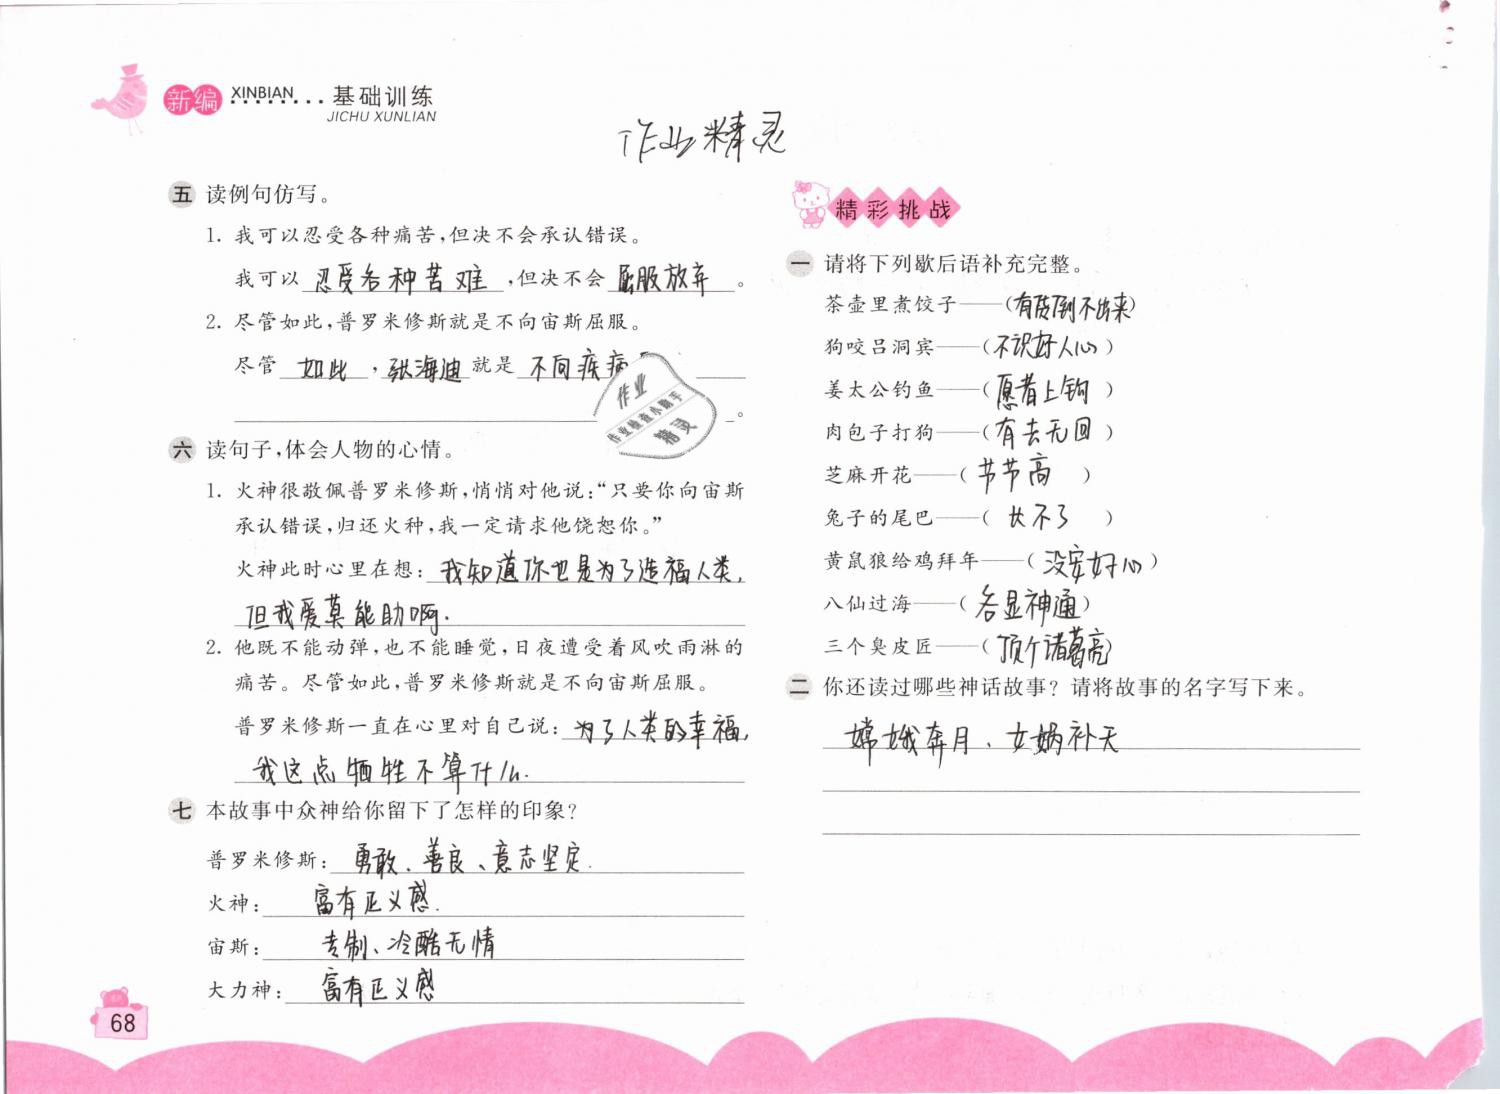 新编 XINBIAN 基础训练
JICHU XUNLIAN
作业精灵
五 读例句仿写。
1. 我可以忍受各种痛苦,但决不会承认错误。
我可以 忍受各种苦难 ,但决不会 屈服放弃 。
2. 尽管如此,普罗米修斯就是不向宙斯屈服。
尽管 如此 ,张海迪 就是 不向疾病
。
作业
作业检查小助手
精灵
六 读句子,体会人物的心情。
1. 火神很敬佩普罗米修斯,悄悄对他说:“只要你向宙斯
承认错误,归还火种,我一定请求他饶恕你。”
火神此时心里在想: 我知道你也是为了造福人类,
但我爱莫能助啊.
2. 他既不能动弹,也不能睡觉,日夜遭受着风吹雨淋的
痛苦。尽管如此,普罗米修斯就是不向宙斯屈服。
普罗米修斯一直在心里对自己说: 为了人类的幸福,
我这点牺牲不算什么.
七 本故事中众神给你留下了怎样的印象?
普罗米修斯: 勇敢、善良、意志坚定.
火神: 富有正义感.
宙斯: 专制、冷酷无情
大力神: 富有正义感
68
精彩挑战
一 请将下列歇后语补充完整。
茶壶里煮饺子——(有货倒不出来)
狗咬吕洞宾——(不识好人心)
姜太公钓鱼——(愿者上钩)
肉包子打狗——(有去无回)
芝麻开花——(节节高)
兔子的尾巴——(长不了)
黄鼠狼给鸡拜年——(没安好心)
八仙过海——(各显神通)
三个臭皮匠——(顶个诸葛亮)
二 你还读过哪些神话故事? 请将故事的名字写下来。
嫦娥奔月、女娲补天